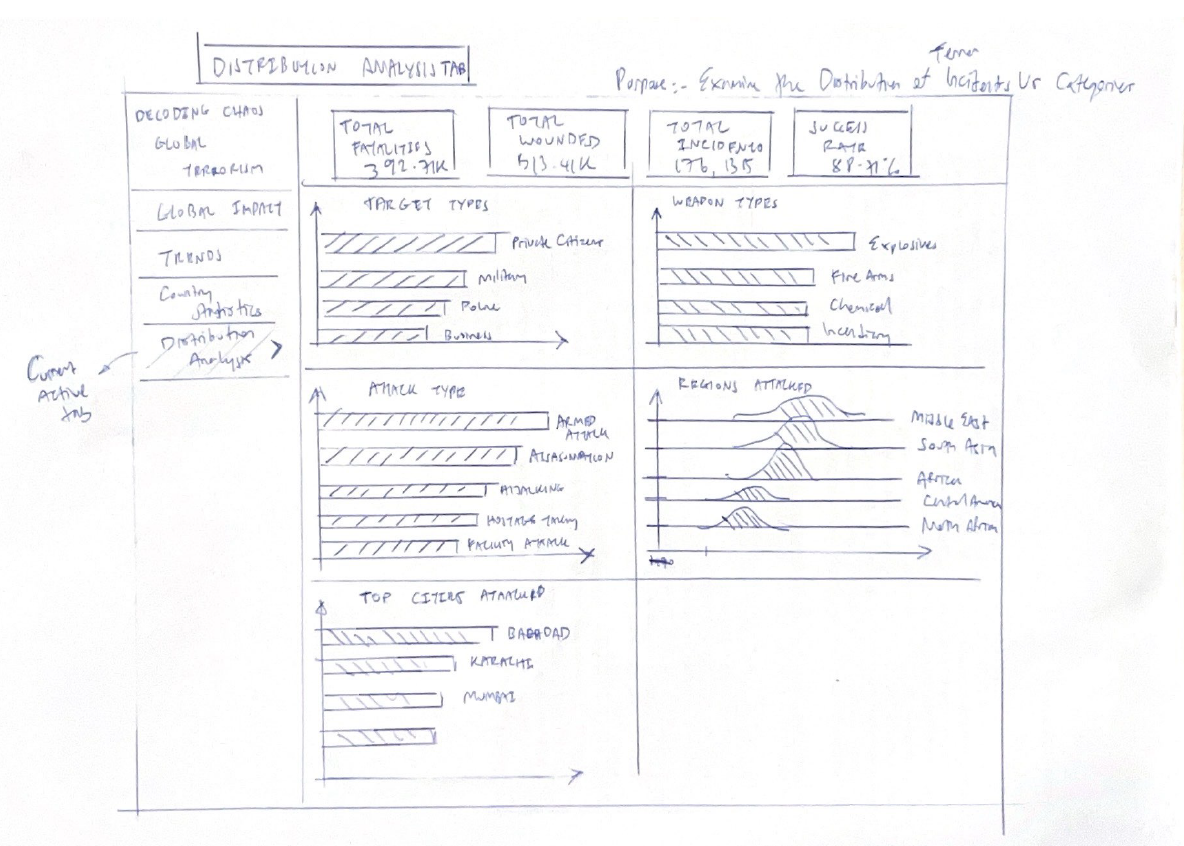 DISTRIBUTION ANALYSIS TAB
Terror
Purpose:- Examine the Distribution of Incidents Vs Categories
DECODING CHAOS
GLOBAL
TERRORISM
GLOBAL IMPACT
TRENDS
Country
Statistics
Distribution
Analysis
Current
Active
tab
TOTAL
FATALITIES
392.71K
TOTAL
WOUNDED
513.41K
TOTAL
INCIDENTS
SUCCESS
RATE
88.71%
TARGET TYPES
Private Citizens
Military
Police
Business
WEAPON TYPES
Explosives
Fire Arms
Chemical
Incendiary
ATTACK TYPE
ARMED
ATTACK
ASSASINATION
HIJACKING
HOSTAGE Taking
FACILITY ATTACK
REGIONS ATTACKED
Middle EAST
South Asia
Africa
Central America
North Africa
TOP CITIES ATTACKED
BAGHDAD
KARACHI
MUMBAI